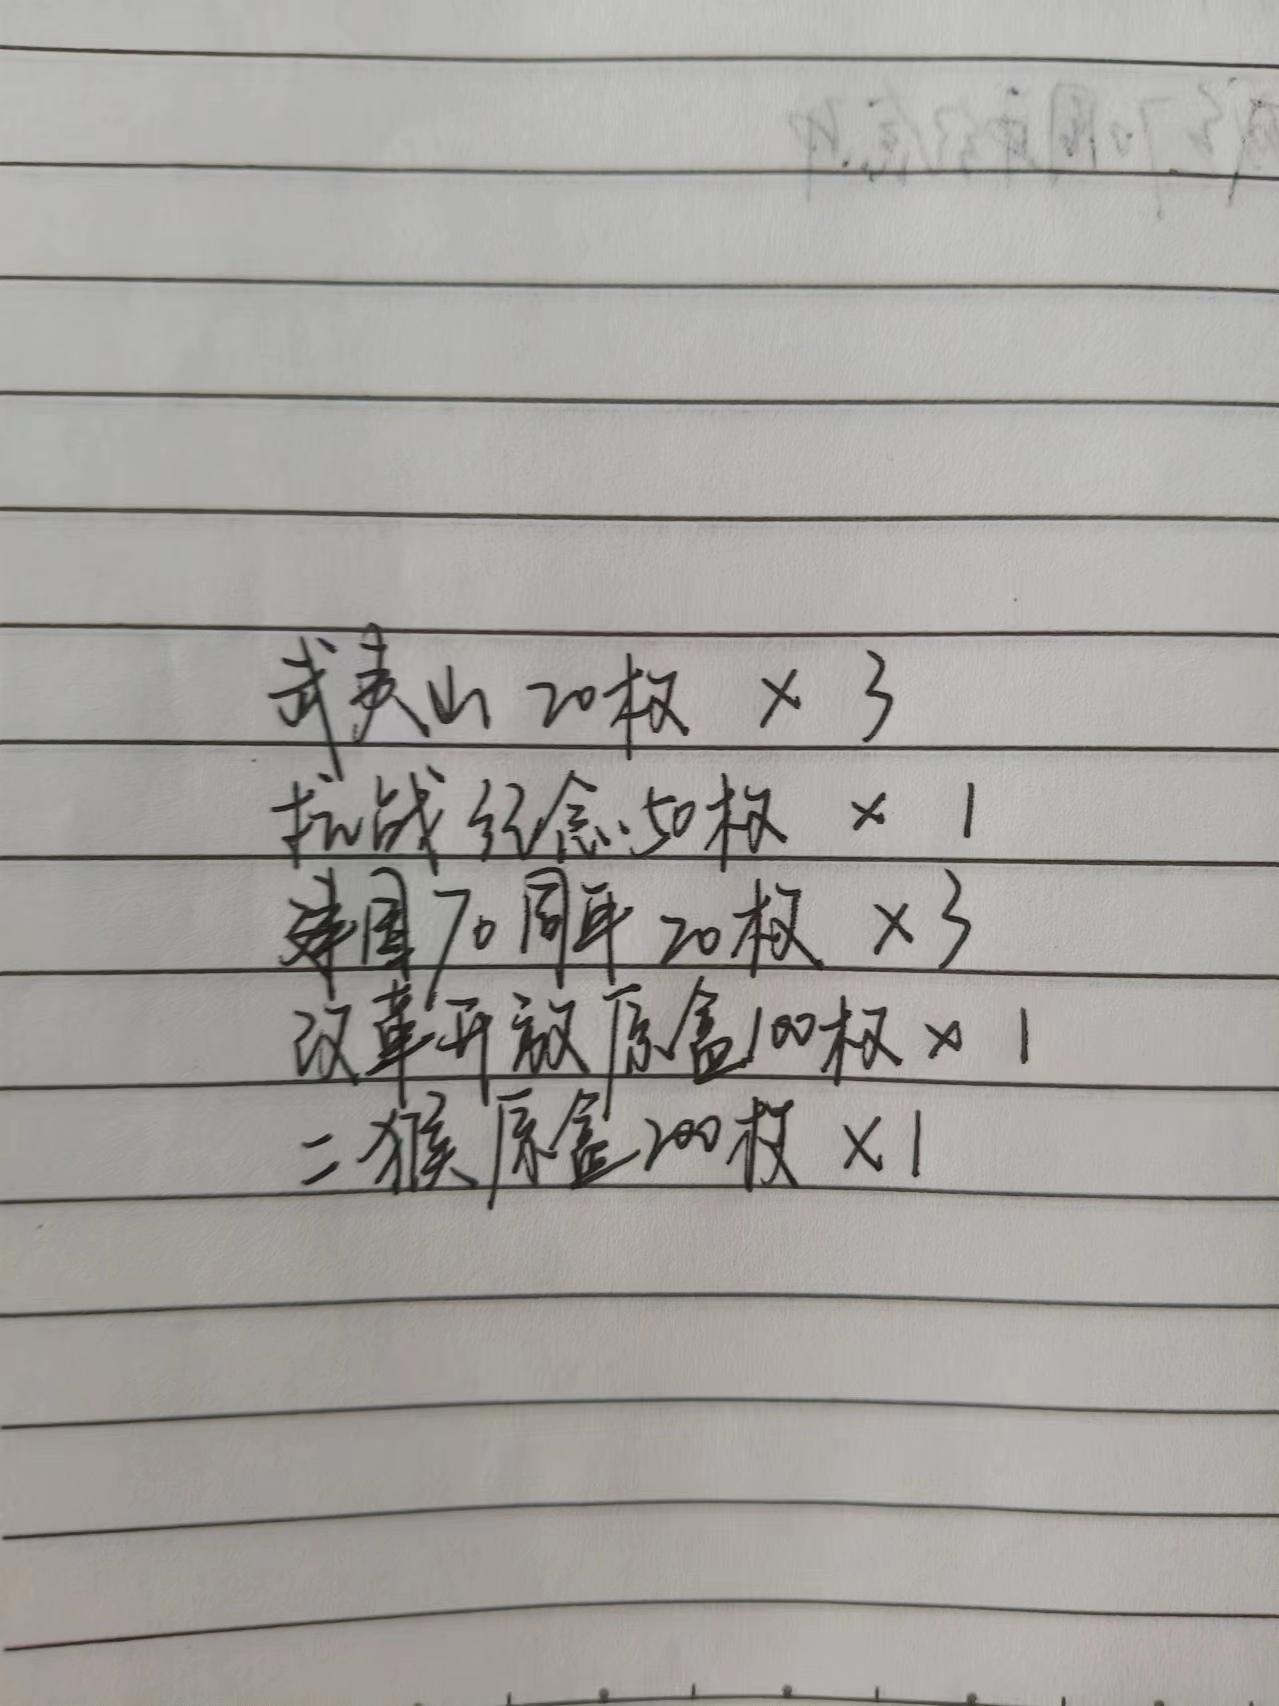 武夷山 20枚 × 3
抗战纪念 50枚 × 1
建国70周年 20枚 ×3
改革开放原盒100枚 × 1
二猴原盒200枚 ×1